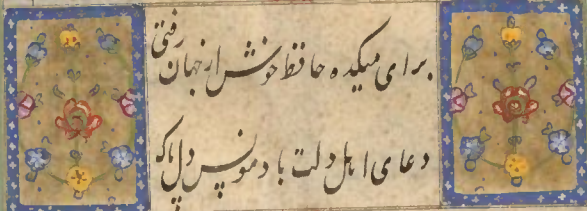 برای میکده حافظ خوش از جهان رفتی
دعای اهل دلت باد مونس دل پاک